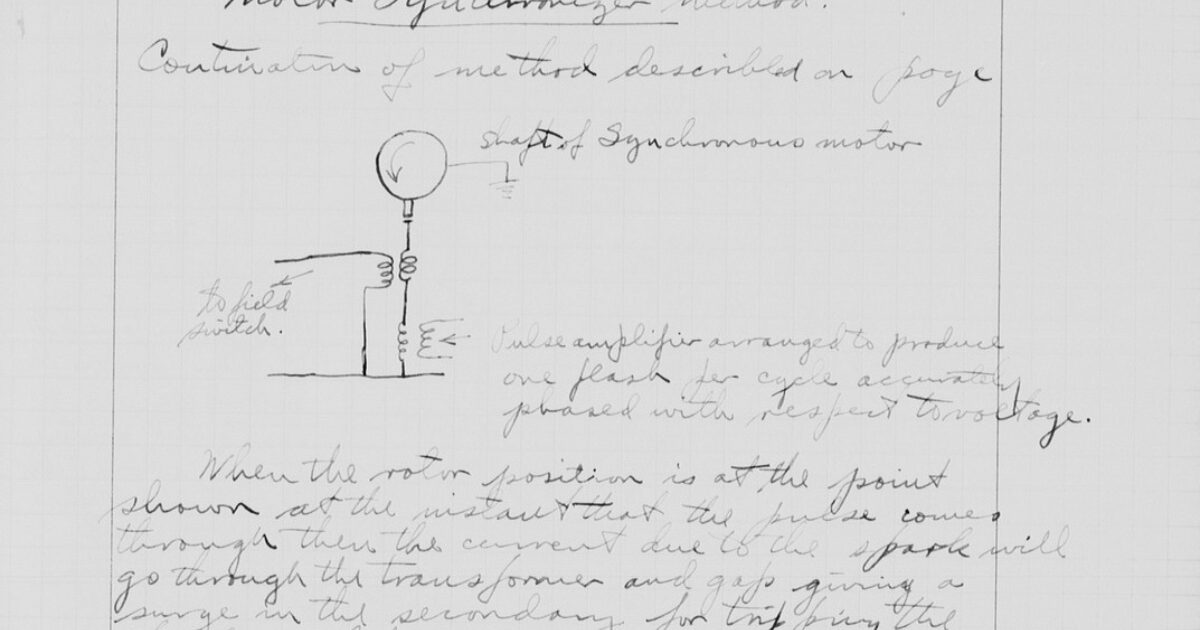 Motor Synchronizer Method.
Continuation of method described on page
shaft of Synchronous motor
to field
switch.
Pulse amplifier arranged to produce
one flash per cycle accurately
phased with respect to voltage.
When the rotor position is at the point
shown at the instant that the pulse comes
through then the current due to the spark will
go through the transformer and gap giving a
surge in the secondary for tripping the